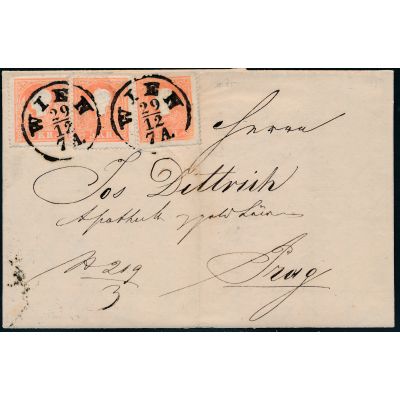 WIEN
29
12
7A.
WIEN
29
12
7A.
Herrn
Jos Dittrich
Apotheke
Prag
219
3